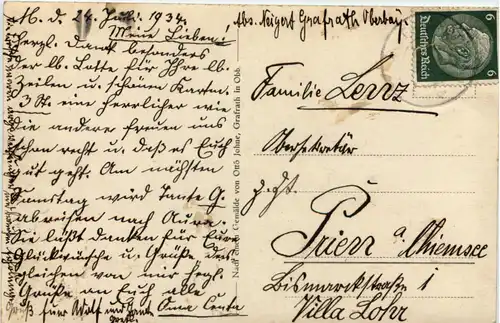 M. d. 24. Juli. 1934.
Meine Lieben!
Herzl. Dank besonders
der lb. Lotte für Ihre lb.
Zeilen u. schönen Karten.
3 St. eine herrlicher wie
die andere freuen uns
schon recht u. daß es Euch
gut geht. Am nächsten
Samstag wird Tante G.
abreisen nach Aura.
Sie läßt danken für Eure
Glückwünsche u. Grüße des-
gleichen von mir herzl.
Grüße an Euch alle
Oma Centa
Gruß für Wolf und Tante
Nach einem Gemälde von Otto Johne, Grafrath in Obb.
Abs. Neigert Grafrath Oberbay
Deutsches Reich
6
6
Familie Lerrz
Obersekretär
z. Zt.
Prien a Chiemsee
Bismarckstraße 1
Villa Lohr